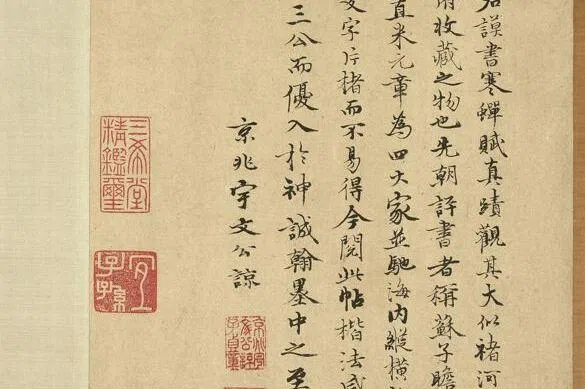 謨書寒蟬賦真蹟觀其大似褚河
收藏之物也先朝評書者稱蘇子瞻
直米元章為四大家並馳海內縱橫
字片楮而不易得今閱此帖楷法
三公而優入於神誠翰墨中之至
京兆宇文公諒
三希堂精鑑璽
宜子孫